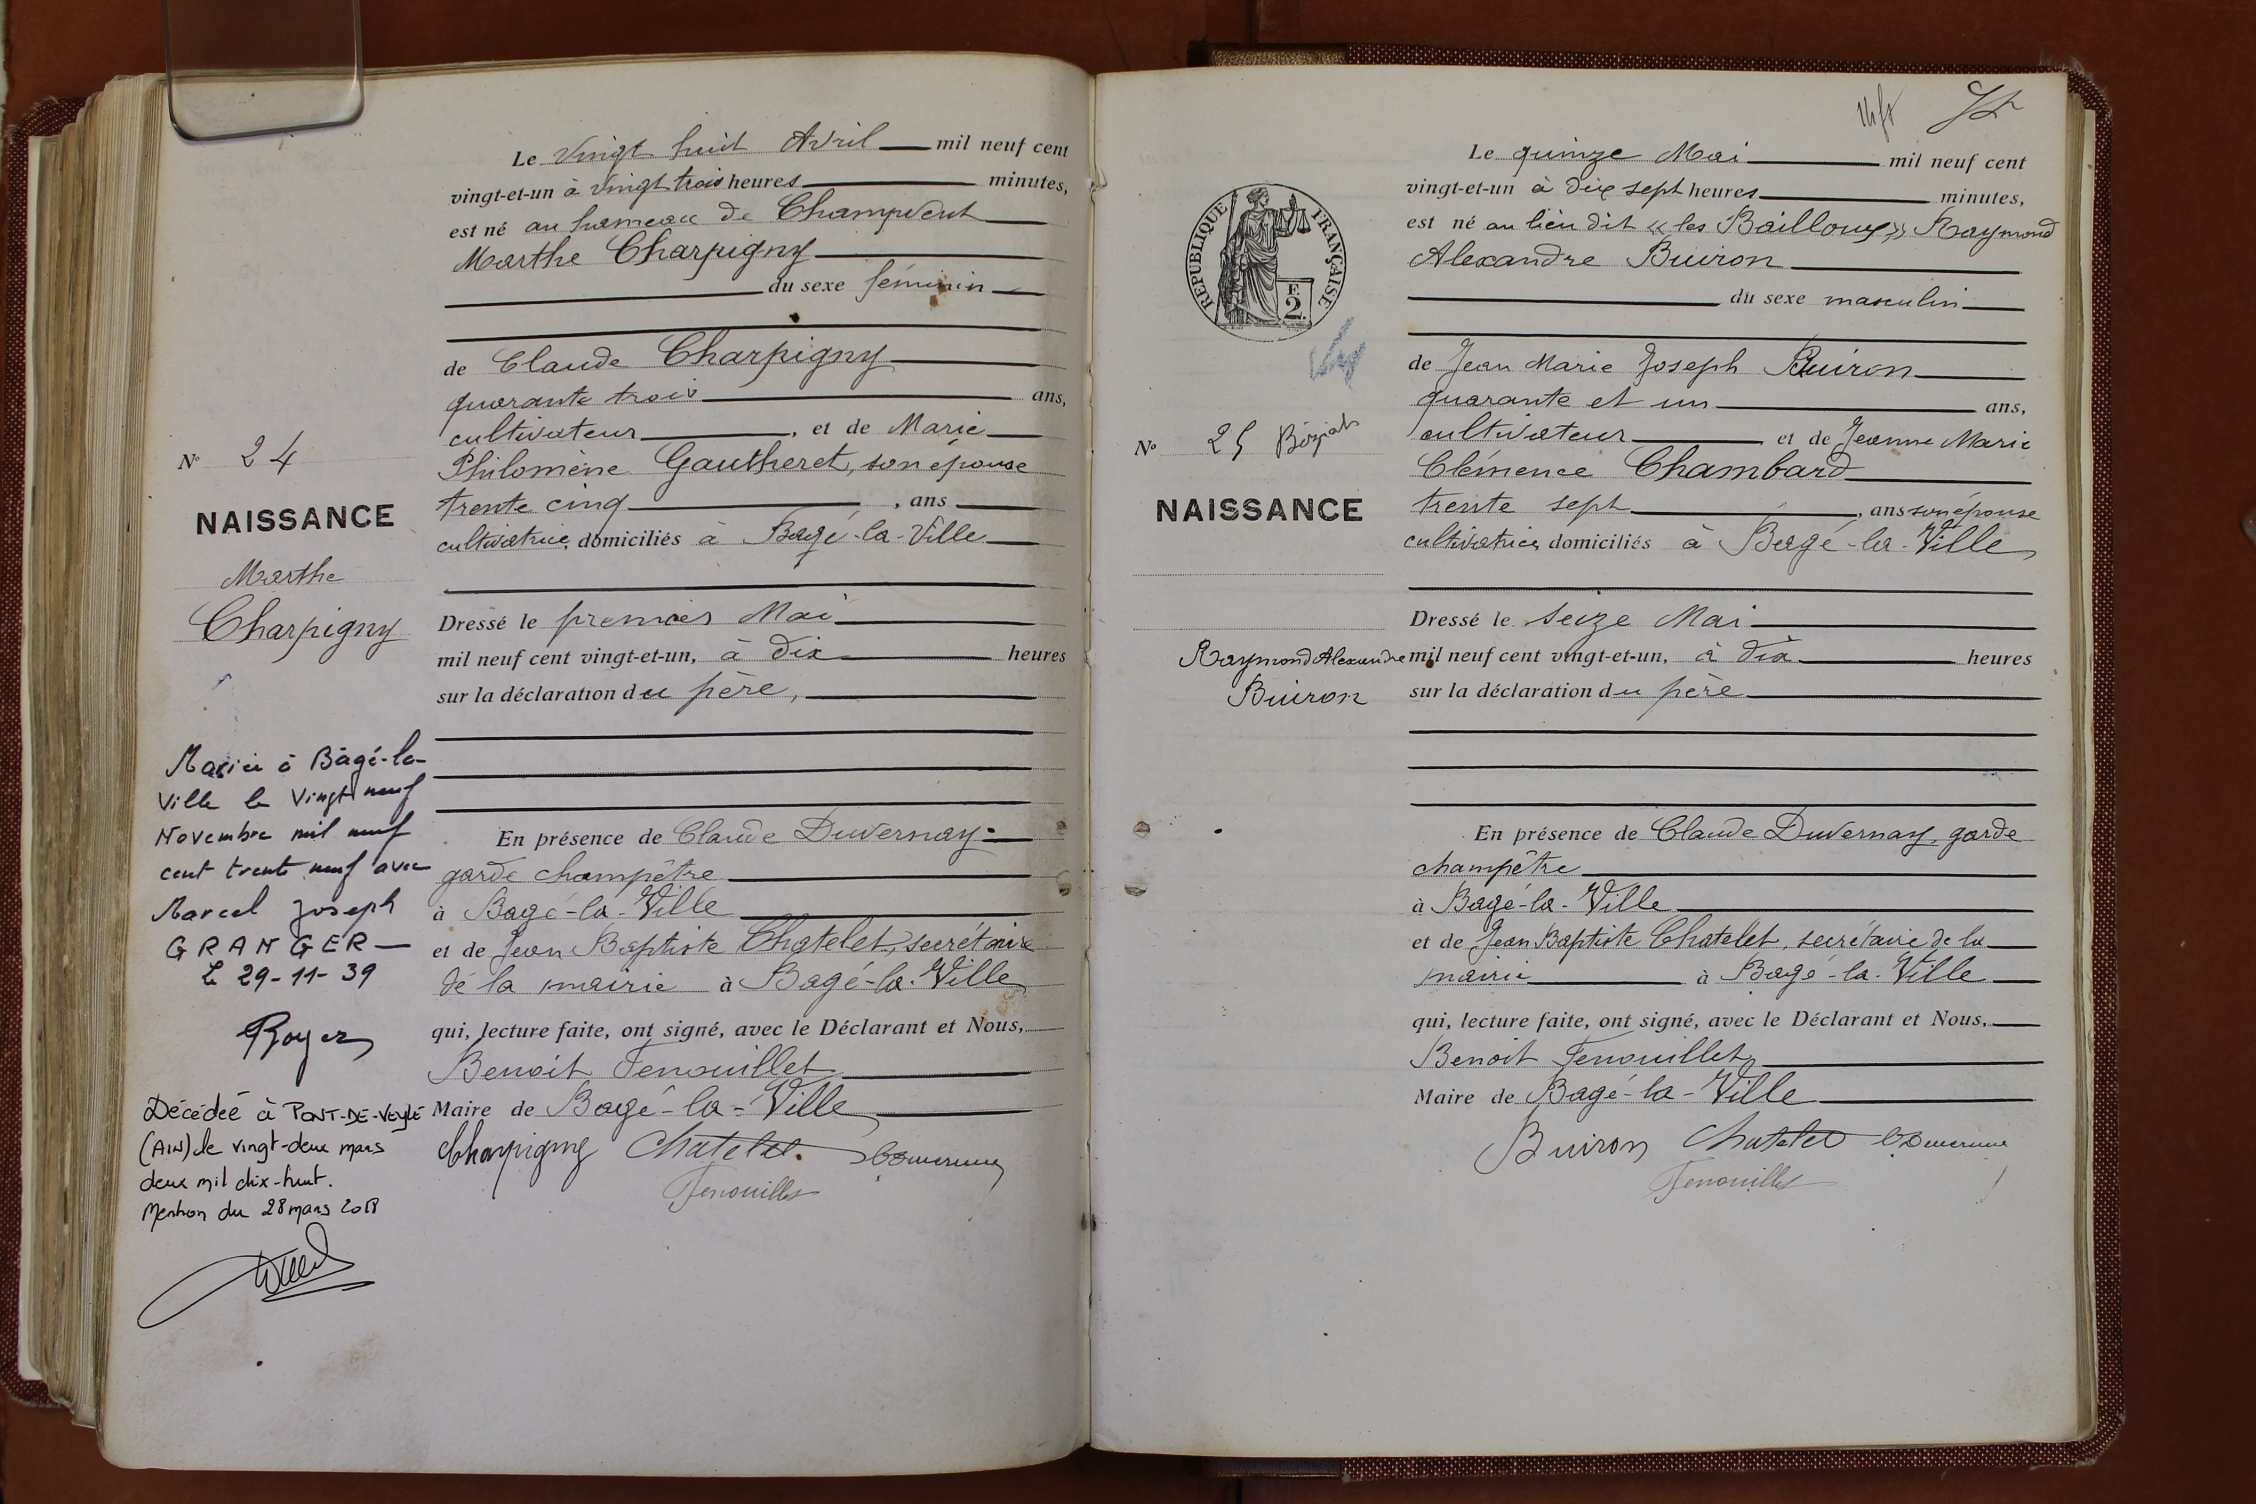 Le vingt huit Avril mil neuf cent
vingt-et-un à vingt trois heures minutes,
est né au hameau de Champvent
Marthe Charpigny
du sexe féminin
de Claude Charpigny
quarante trois ans,
cultivateur, et de Marie
Philomène Gautheret, son épouse
trente cinq, ans
cultivatrice, domiciliés à Bagé-la-Ville
Dressé le premier Mai
mil neuf cent vingt-et-un, à dix heures
sur la déclaration du père,
En présence de Claude Duvernay
garde champêtre
à Bagé-la-Ville
et de Jean Baptiste Chatelet, secrétaire
de la mairie à Bagé-la-Ville
qui, lecture faite, ont signé, avec le Déclarant et Nous,
Benoit Fenouillet
Maire de Bagé-la-Ville
Charpigny Chatelet
Fenouillet
No 24
NAISSANCE
Marthe
Charpigny
Mariée à Bâgé-la-
Ville le Vingt neuf
Novembre mil neuf
cent trente neuf avec
Marcel Joseph
GRANGER
Le 29-11-39
Royer
Décédée à PONT-DE-VEYLE
(AIN) le vingt-deux mars
deux mil dix-huit.
Mention du 28 mars 2018
Le quinze Mai mil neuf cent
vingt-et-un à dix sept heures minutes,
est né au lieu dit « les Bailloux » Raymond
Alexandre Buiron
du sexe masculin
de Jean Marie Joseph Buiron
quarante et un ans,
cultivateur et de Jeanne Marie
Clémence Chambard
trente sept, ans son épouse
cultivatrice, domiciliés à Bagé-la-Ville
Dressé le seize Mai
mil neuf cent vingt-et-un, à dix heures
sur la déclaration du père
En présence de Claude Duvernay, garde
champêtre
à Bagé-la-Ville
et de Jean Baptiste Chatelet, secrétaire de la
mairie à Bagé-la-Ville
qui, lecture faite, ont signé, avec le Déclarant et Nous,
Benoit Fenouillet
Maire de Bagé-la-Ville
Buiron Chatelet
Fenouillet
REPUBLIQUE FRANÇAISE
F.
2.
No 25
NAISSANCE
Raymond Alexandre
Buiron